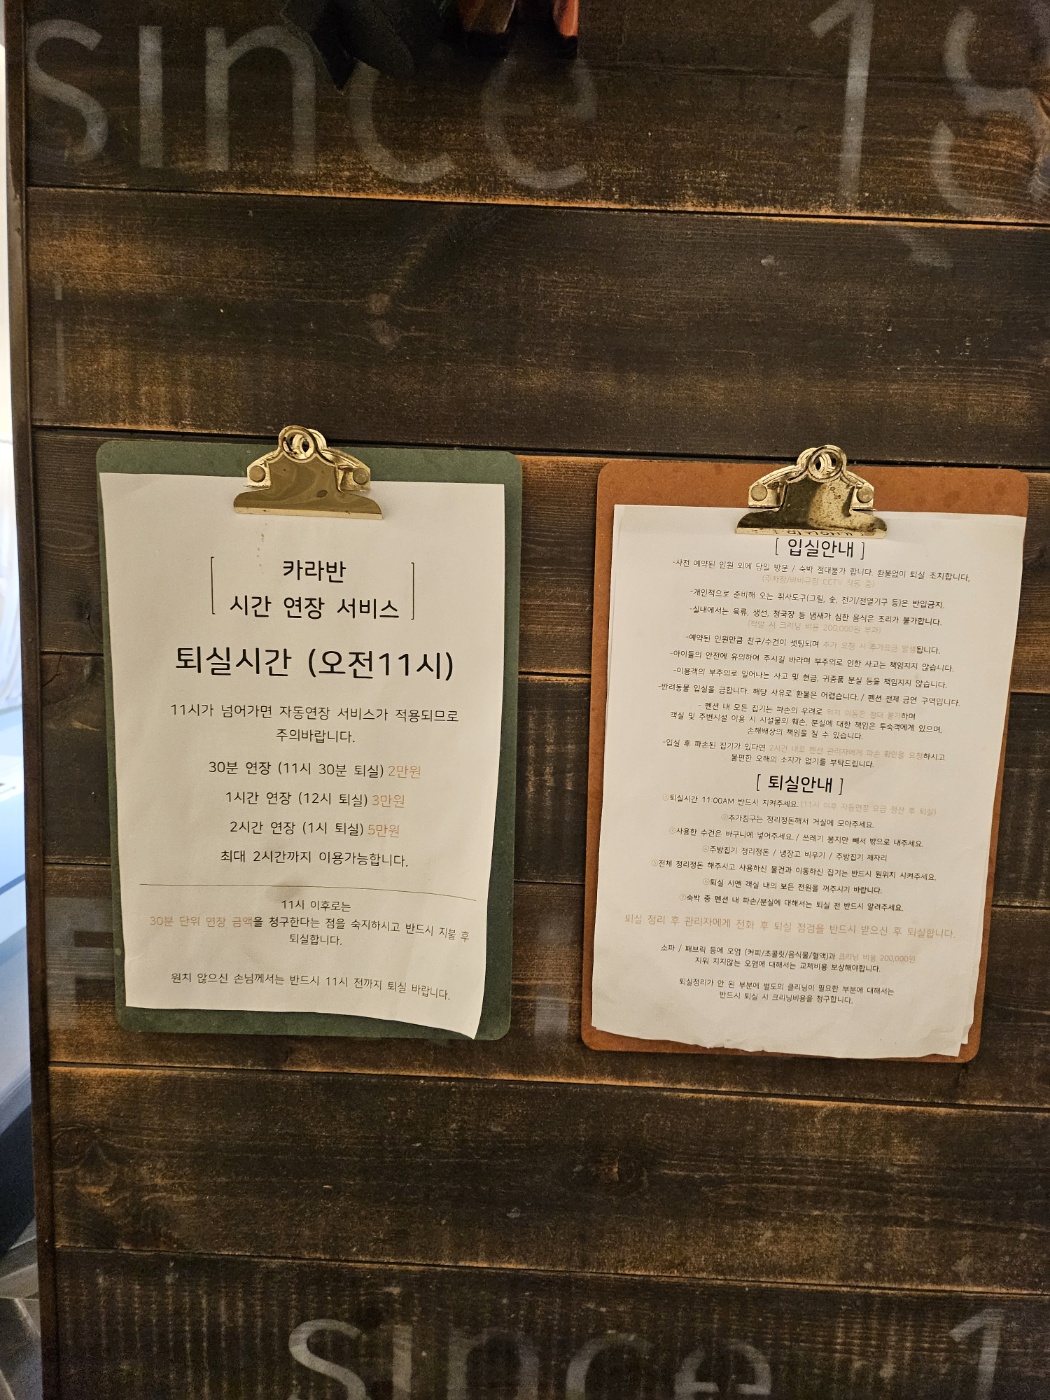 since 19
[ 카라반
시간 연장 서비스 ]
퇴실시간 (오전11시)
11시가 넘어가면 자동연장 서비스가 적용되므로
주의바랍니다.
30분 연장 (11시 30분 퇴실) 2만원
1시간 연장 (12시 퇴실) 3만원
2시간 연장 (1시 퇴실) 5만원
최대 2시간까지 이용가능합니다.
11시 이후로는
30분 단위 연장 금액을 청구한다는 점을 숙지하시고 반드시 지불 후
퇴실합니다.
원치 않으신 손님께서는 반드시 11시 전까지 퇴실 바랍니다.
[ 입실안내 ]
-사전 예약된 인원 외에 당일 방문 / 숙박 절대불가 합니다. 환불없이 퇴실 조치합니다.
(주차장/바비큐장 CCTV 작동 중)
-개인적으로 준비해 오는 취사도구(그릴, 숯, 전기/전열기구 등)은 반입금지.
-실내에서는 육류, 생선, 청국장 등 냄새가 심한 음식은 조리가 불가합니다.
(적발 시 크리닝 비용 200,000원 부과)
-예약된 인원만큼 침구/수건이 셋팅되며 추가 요청 시 추가요금 발생됩니다.
-아이들의 안전에 유의하여 주시길 바라며 부주의로 인한 사고는 책임지지 않습니다.
-이용객의 부주의로 일어나는 사고 및 현금, 귀중품 분실 등을 책임지지 않습니다.
-반려동물 입실을 금합니다. 해당 사유로 환불은 어렵습니다. / 펜션 전체 금연 구역입니다.
- 펜션 내 모든 집기는 파손의 우려로 위치 이동은 절대 불가하며
객실 및 주변시설 이용 시 시설물의 훼손, 분실에 대한 책임은 투숙객에게 있으며,
손해배상의 책임을 질 수 있습니다.
-입실 후 파손된 집기가 있다면 2시간 내로 펜션 관리자에게 파손 확인을 요청하시고
불편한 오해의 소지가 없기를 부탁드립니다.
[ 퇴실안내 ]
①퇴실시간 11:00AM 반드시 지켜주세요. (11시 이후 자동연장 요금 정산 후 퇴실)
②추가침구는 정리정돈해서 거실에 모아주세요.
③사용한 수건은 바구니에 넣어주세요. / 쓰레기 봉지만 빼서 밖으로 내주세요.
④주방집기 정리정돈 / 냉장고 비우기 / 주방집기 제자리
⑤전체 정리정돈 해주시고 사용하신 물건과 이동하신 집기는 반드시 원위치 시켜주세요.
⑥퇴실 시엔 객실 내의 모든 전원을 꺼주시기 바랍니다.
⑦숙박 중 펜션 내 파손/분실에 대해서는 퇴실 전 반드시 알려주세요.
퇴실 정리 후 관리자에게 전화 후 퇴실 점검을 반드시 받으신 후 퇴실합니다.
소파 / 패브릭 등에 오염 (커피/초콜릿/음식물/혈액)과 크리닝 비용 200,000원
지워 지지않는 오염에 대해서는 교체비를 보상해야합니다.
퇴실정리가 안 된 부분에 별도의 클리닝이 필요한 부분에 대해서는
반드시 퇴실 시 크리닝비용을 청구합니다.
since 1